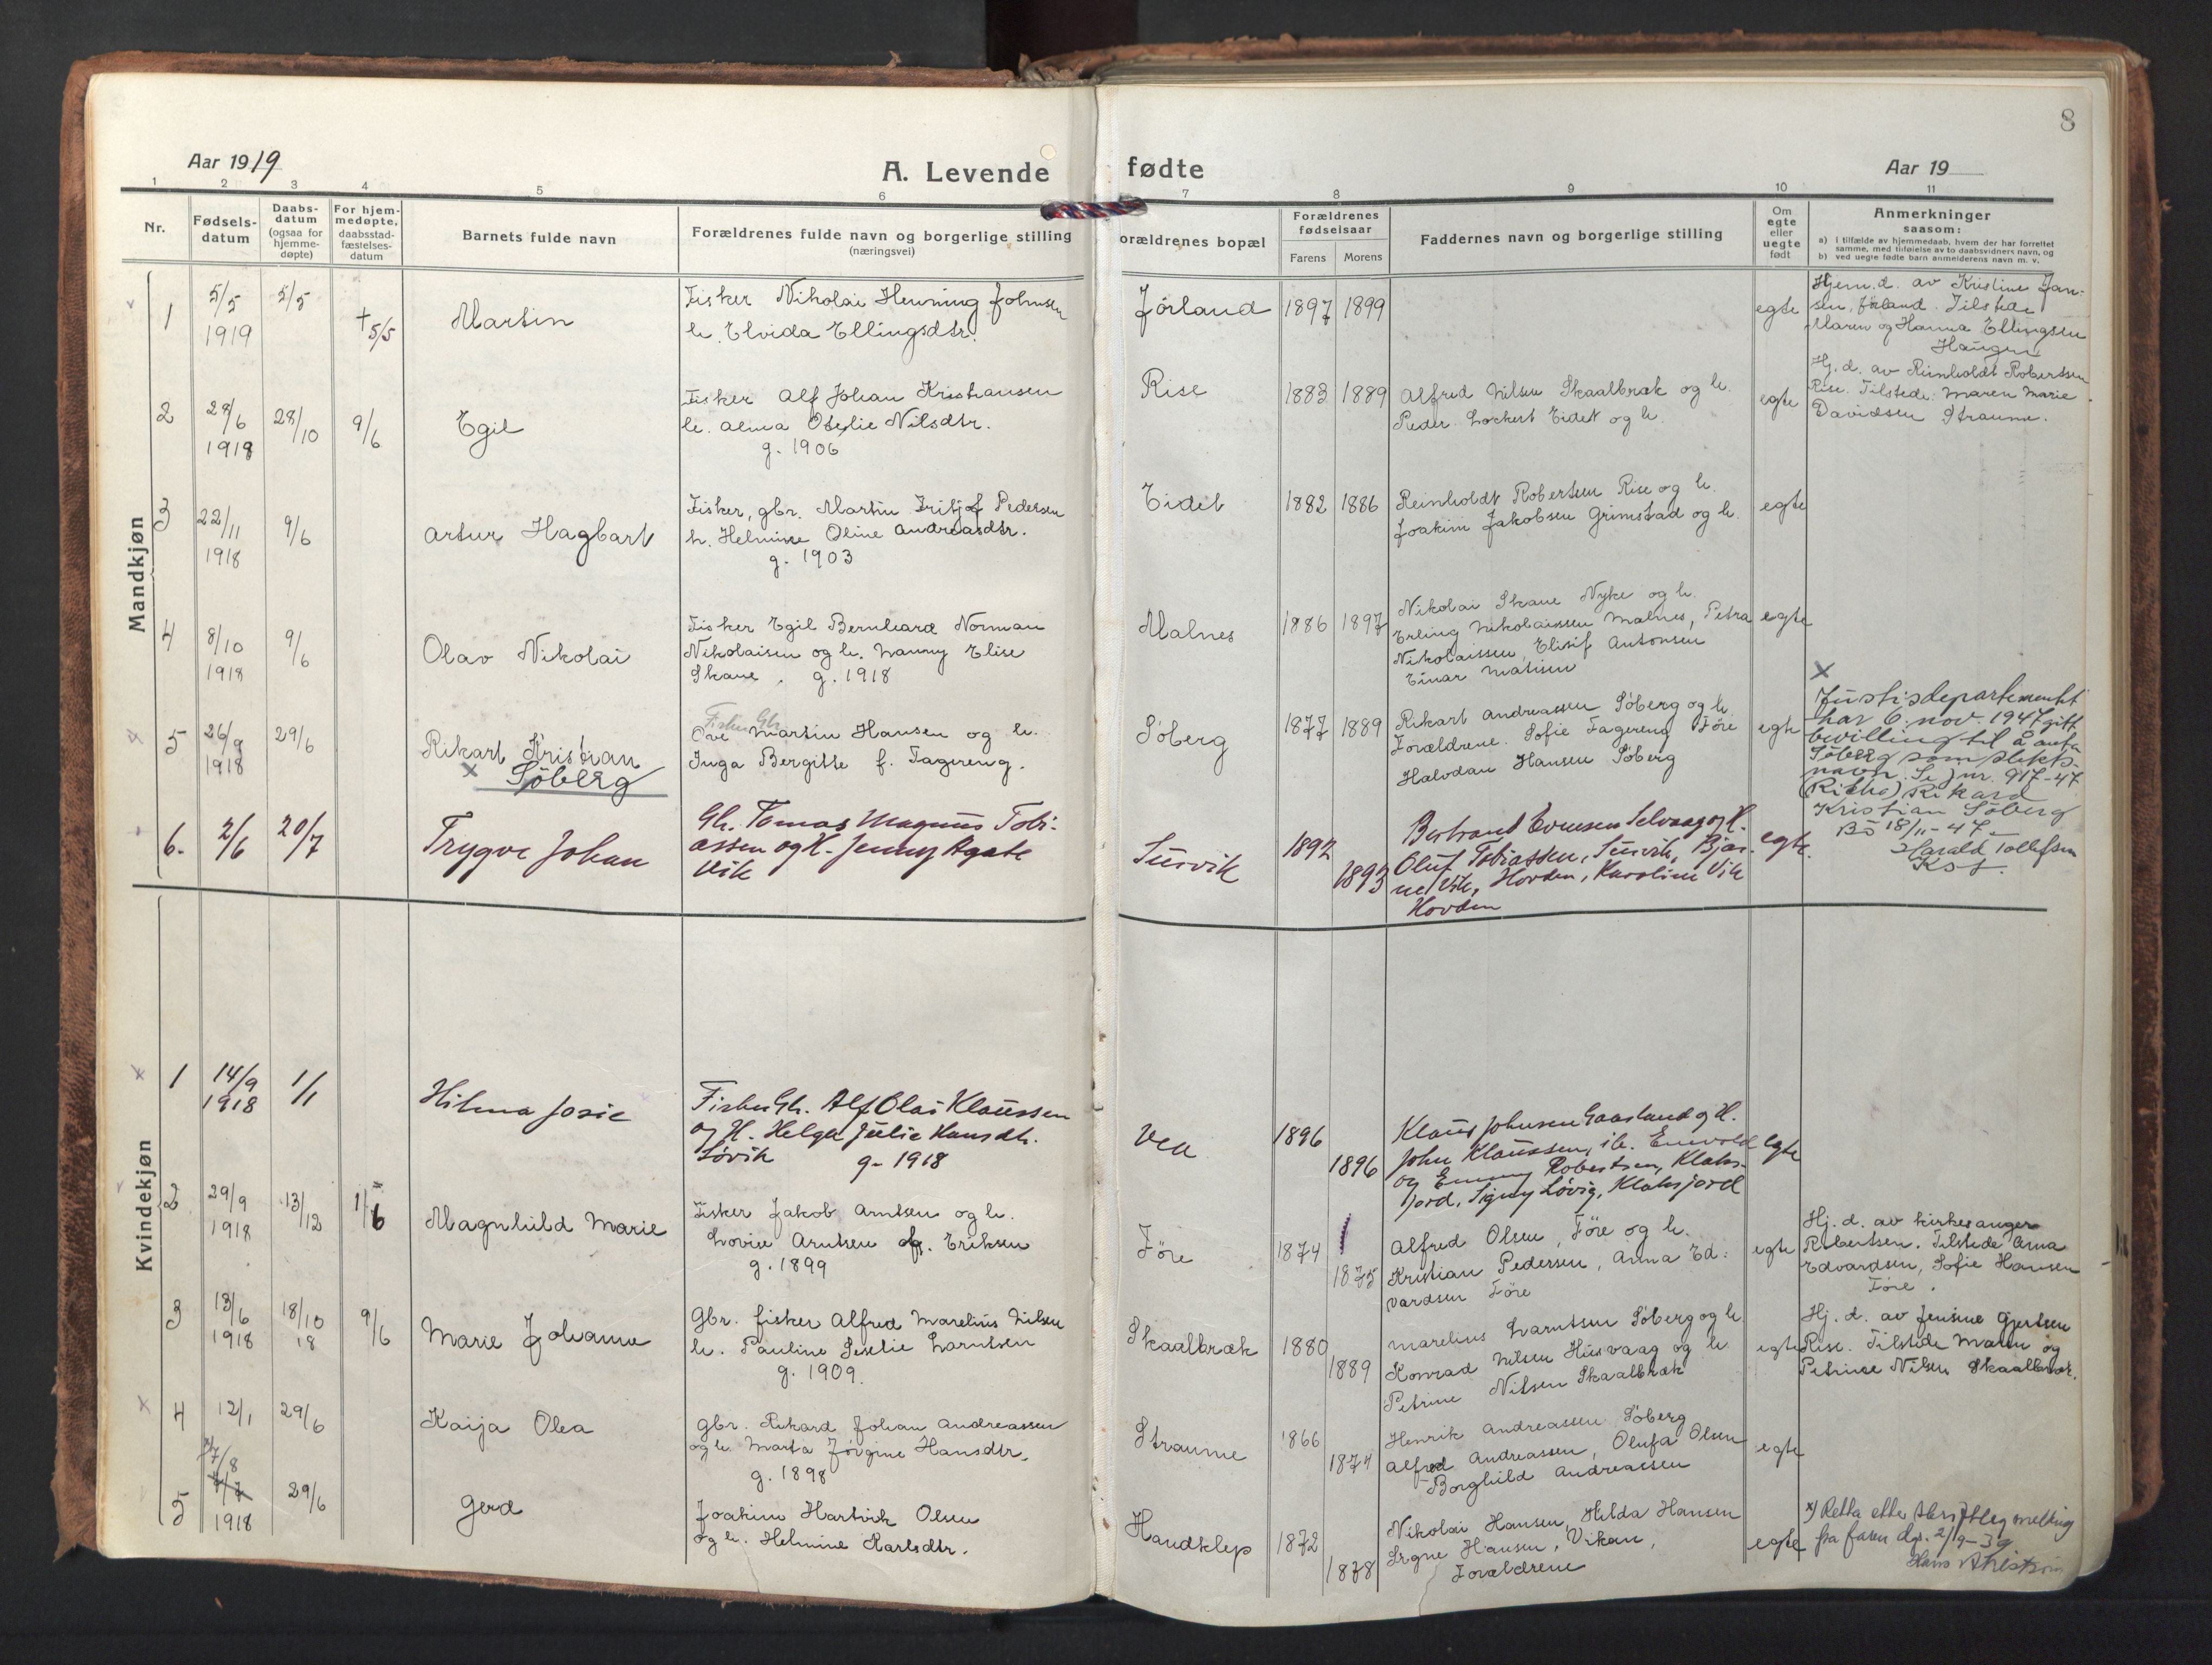 8
Aar 1919
A. Levende fødte
Aar 19
1 2 3 4 5 6 7 8 9 10 11
Nr.
Fødsels-
datum
Daabs-
datum
(ogsaa for
hjemme-
døpte)
For hjem-
medøpte,
daabsstad-
fæstelses-
datum
Barnets fulde navn
Forældrenes fulde navn og borgerlige stilling
(næringsvei)
orældrenes bopæl
Forældrenes
fødselsaar
Farens Morens
Faddernes navn og borgerlige stilling
Om
egte
eller
uegte
født
Anmerkninger
saasom:
a) i tilfælde av hjemmedaab, hvem der har forrettet
samme, med tilføielse av to daabsvidners navn, og
b) ved uegte fødte barn anmelderens navn m. v.
Mandkjøn
1
5/5
1919
5/5
+ 5/5
Martin
Fisker Nikolai Henning Johnsen
h. Elvida Ellingsdtr.
Jörland
1897 1899
egte
Hjem.d. av Kristine Jan-
sen, Jörland. Tilstede
Maren og Hanna Ellingsen
Haugen
2
28/6
1918
28/10
9/6
Egil
Fisker Alf Johan Kristiansen
h. Alma Otelie Nilsdtr.
g. 1906
Rise
1883 1889
Alfred Nilsen Skaalbræk og h.
Peder Lockert Eidet og h.
egte
Hj. d. av Reinholdt Robertsen
Rise. Tilstede Maren Marie
Davidsen Straume.
3
22/11
1918
9/6
Artur Hagbart
Fisker, gbr. Martin Fritjof Pedersen
h. Helmine Oline Andreasdtr.
g. 1903
Eidet
1882 1886
Reinholdt Robertsen Rise og h.
Joakim Jakobsen Grimstad og h.
egte
4
8/10
1918
9/6
Olav Nikolai
Fisker Egil Bernhard Norman
Nikolaisen og h. Nanny Elise
Skane. g. 1918
Malnes
1886 1897
Nikolai Skane Nyke og h.
Erling Nikolaissen Malnes, Petra
Nikolaissen, Elisif Antonsen
Einar Matisen
egte
5
26/9
1918
29/6
Rikart Kristian
x Söberg
Fisker Gb.
Ove Martin Hansen og h.
Inga Bergitte f. Fagereng.
Söberg
1877 1889
Rikart Andreassen Söberg og h.
Forældrene. Sofie Fagereng Före
Halvdan Hansen Söberg
egte
x
Justisdepartementet
har 6. nov. 1947 gitt
bevilling til å anta
Söberg som slekts-
navn. Se jnr. 917-47
Rikard
Kristian Söberg
Bö 18/11-47
Harald Tollefsen
6.
2/6
20/7
Trygve Johan
Gb. Tomas Magnus Tobi-
assen og H. Jenny Agate
Vik
Sürvik
1892
1893
Bertrand Evensen Selvaag og H.
Oluf Tobiassen, Sürvik, Bjar-
ne Vik, Hovden, Karoline Vik
Hovden
egte.
Kvindekjøn
1
14/9
1918
1/1
Hilma Josie
Fisker Gb. Alf Olai Klaüssen
og H. Helga Julie Hansdtr.
Lövik g. 1918
Vea
1896
1896
Klaus Johnsen Gaasland og H.
John Klaüssen, ib. Enevold
og Emmy Robertsen, Klaks-
jord, Signy Lövig, Klaksjord
egte
2
29/9
1918
13/12
1/6
Magnhild Marie
Fisker Jakob Arntsen og h.
Lovise Arntsen f. Eriksen
g. 1899
Före
1874
1875
Alfred Olsen, Före og h.
Kristian Pedersen, Anna Ed-
vardsen Före
egte
Hj. d. av kirkesanger
Robertsen. Tilstede Anna
Edvardsen, Sofie Hansen
Före.
3
13/6
1918
18/10
18
9/6
Marie Johanne
Gbr. fisker Alfred Marelius Nilsen
h. Pauline Seselie Larntsen
g. 1909.
Skaalbræk
1880
1889
Marelius Larntsen Söberg og h
Konrad Nilsen Husvaag og h
Petrine Nilsen Skaalbræk
egte
Hj. d. av Jensine Gjertsen
Rise. Tilstede Maren og
Petrine Nilsen Skaalbræk.
4
12/1
29/6
Kaija Olea
gbr. Rikard Johan Andreassen
og h. Marta Jörgine Hansdtr.
g. 1898
Straume
1866
1874
Henrik Andreassen Söberg
Alfred Andreassen, Olufa Olsen
Borghild Andreassen
egte
5
17/8
1918
29/6
Gerd
Joakim Hartvik Olsen
og h. Helmine Karlsdtr.
Haudklep
1872
1878
Nikolai Hansen, Hilda Hansen
Signe Hansen, Vikan,
Forældrene
egte
x) Retta etter skriftleg melding
fra faren dgs. 2/9-39
Hans Ahlström